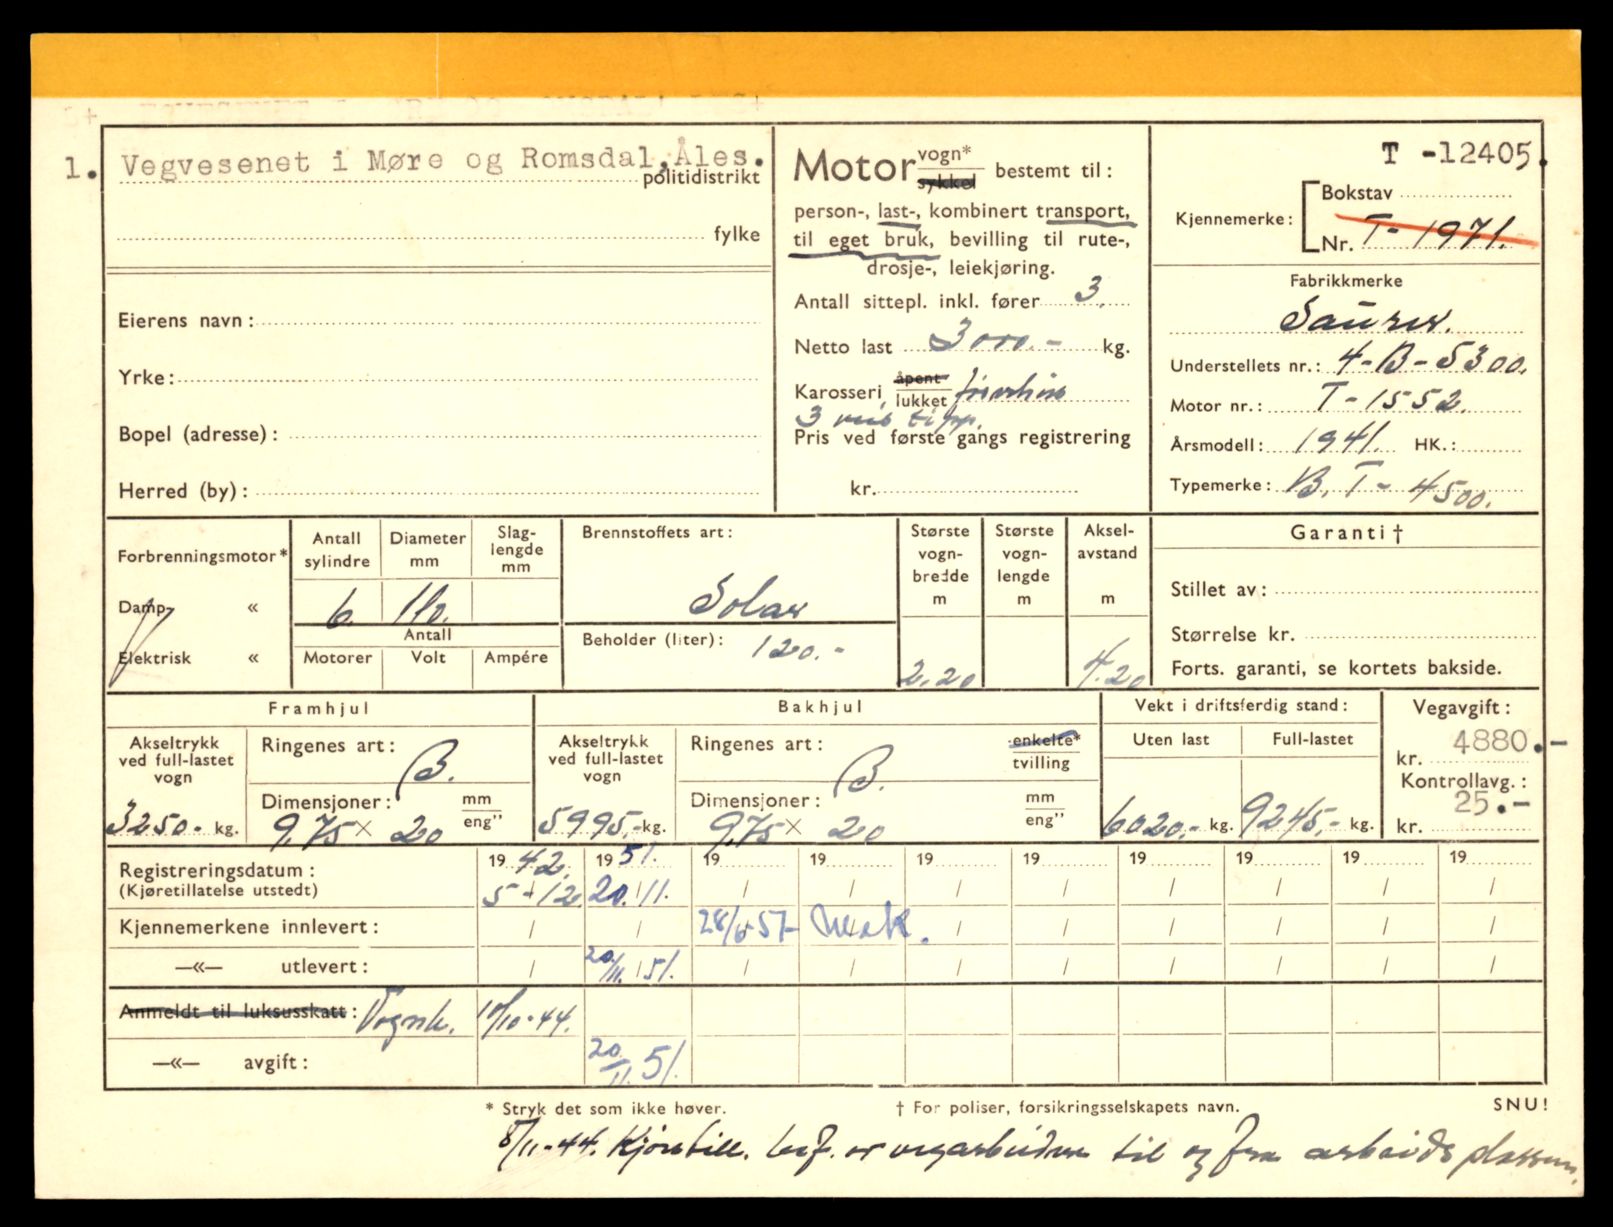 1. Vegvesenet i Møre og Romsdal, Åles.
politidistrikt
fylke
Eierens navn:
Yrke:
Bopel (adresse):
Herred (by):
Motor vogn* sykkel bestemt til:
person-, last-, kombinert transport,
til eget bruk, bevilling til rute-,
drosje-, leiekjøring.
Antall sittepl. inkl. fører 3.
Netto last 3000.- kg.
Karosseri åpent lukket førerhus
3 veis tipp.
Pris ved første gangs registrering
kr.
T -12405.
Kjennemerke: Bokstav
Nr. T- 1971.
Fabrikkmerke
Saurer.
Understellets nr.: 4-B-5300.
Motor nr.: T-1552.
Årsmodell: 1941. HK.:
Typemerke: B.T- 4500.
Forbrenningsmotor*
Damp- «
Elektrisk «
Antall sylindre
Diameter mm
Slag-lengde mm
6. 110.
Antall
Motorer Volt Ampére
Brennstoffets art:
Solar
Beholder (liter): 120.-
Største vogn-bredde m
2.20
Største vogn-lengde m
Aksel-avstand m
4.20
Garanti †
Stillet av:
Størrelse kr.
Forts. garanti, se kortets bakside.
Framhjul
Akseltrykk ved full-lastet vogn
3250.- kg.
Ringenes art: B.
Dimensjoner: mm eng"
9,75 x 20
Bakhjul
Akseltrykk ved full-lastet vogn
5995,- kg.
Ringenes art: B. enkelte* tvilling
Dimensjoner: mm eng"
9,75 x 20
Vekt i driftsferdig stand:
Uten last Full-lastet
6020.- kg. 9245,- kg.
Vegavgift:
kr. 4880.-
Kontrollavg.:
kr. 25.-
Registreringsdatum: 19 42. 19 51. 19 19 19 19 19 19 19 19
(Kjøretillatelse utstedt) 5-12 20./11. / / / / / / / /
Kjennemerkene innlevert: / / 28/6-57- / / / / / /
—«— utlevert: / 20/11. 51. / / / / / / / /
Anmeldt til luksusskatt: Vognk. 10/10-44.
—«— avgift: 20/11. 51.
* Stryk det som ikke høver. † For poliser, forsikringsselskapets navn. SNU!
8/11-44. Kjøretill. bef. av vegarbeidere til og fra arbeidsplassen.